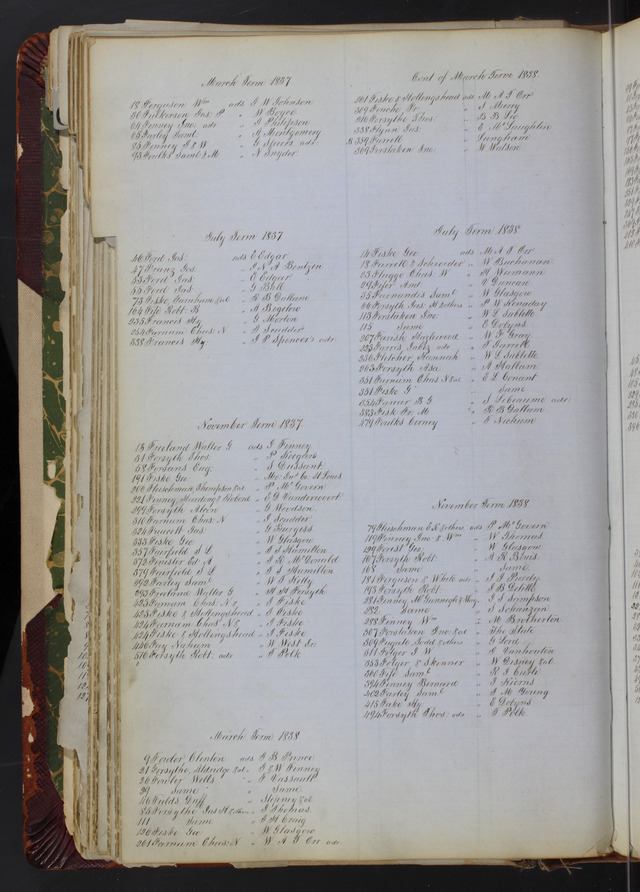 March Term 1837
18 Ferguson Wm ads J W Johnson
36 Fulkerson Jas P " W Boyce
64 Finney Jno. adr " J Philipson
65 Farley Saml " A Montgomery
85 Finney J & W " G Speers adr
93 Foulks Saml M " N Snyder
July Term 1837
46 Ford Jas ads E Edgar
47 Franz Jos " J N A Bentzen
53 Ford Jas " E Edgar
55 Ford Jas " G Bell
73 Fiske Farnham &al " R B Dallam
104 Fife Robt. B " A Bigelow
235 Francis Hy " G Morton
254 Farnum Chas. N " J Scudder
338 Francis Hy " J P Spencer's adr
November Term 1837
13 Freeland Walter G ads J Finney
51 Forsyth Thos. " P Siegers
68 Forsons Eng. " S Dussant
191 Fiske Geo " Mo Ins Co St Louis
200 Fleischman Thompson &al " P McGovern
221 Finney, & " E G Vandervoort
299 Forsyth Alvin " G Woodson
310 Farnum Chas N " J Scudder
324 Faucett Jas " G Burgess
333 Fiske Geo " W Glasgow
357 Fairfield S L " J S Hamilton
372 Finister Col A " J R McDonald
379 Fairfield S L " J S Hamilton
392 Farley Saml " W J Kelly
393 Freeland Walter G " H H Forsyth
423 Farnum Chas. N & " J Fiske
423 Fiske & Hollingshead " E Fiske
424 Farnam Chas N & " J Fiske
424 Fiske & Hollingshead " J Fiske
436 Fay Nahum " W West Sr
510 Forsyth Robt. adr " T Polk
March Term 1838
9 Fowler, Clinton ads J B Prince
21 Forsythe, Aldridge &al " J & W Finney
26 Fowler Wells " F Vassault
29 Same " Same
46 Fields Guff " Stepney &al
85 Forsythe Jas H & others " J Thomas
111 Same " E H Craig
126 Fiske Geo " W Glasgow
261 Farnum Chas. N " W A T Orr adr
Cont of March Term 1838
261 Fiske & Hollingshead ads M A T Orr
309 Fouche, P. " S Merry
310 Forsythe Thos. " B B Lee
338 Flynn Jas. " E McLaughlin
359 Farrell " Langham
369 Forstaken Jno. " M Watson
July Term 1838
14 Fiske Geo ads M A T Orr
18 Farrell & Schroeder " W Buchanan
23 Fugge Chas W " H Wiemann
29 Fifer And " V Duncan
35 Farnandis Saml " W Glasgow
96 Forsyth Jas M & others " P W Hounday
113 Forstaken Jno. " W L Sublette
115 Same " E Dobyns
207 Farish Hazlewood " W P Gray
225 Farris Jabez adr " J Garrell
256 Fletcher, Rannick " W L Sublette
263 Forsyth Asa " A Hallam
331 Farnum Chas N &al " E L Conant
331 Fiske G " Same
354 Farrar B G " S Lebeaume adr
383 Fisk Fr. M " R B Dallam
479 Foulks Corney " E Nichum
November Term 1838
79 Fleischman E K & others ads P McGovern
119 Finney Jno & Wm " W Thomas
129 Forest Geo. " W Glasgow
167 Forsyth Robt. " A R Bous
168 Same " Same
181 Ferguson & White adr " J J Purdy
193 Forsyth Robt. " J B Delille
281 Finney McDonnough & Hoy " J S Sampson
282 Same " S Johanzen
288 Finney Wm " M Brotherton
307 Forstaken Jno. &al " The State
309 Fugate Dodd & others " G Lord
311 Folger J W " E Vanhouten
355 Folger & Skinner " W Risley &al
360 Fife Saml " R J Curle
394 Finney Bernard " J Kearns
402 Farley Saml " J M Young
415 Fake Hy " E Dobyns
494 Forsyth Thos. adr " T Polk